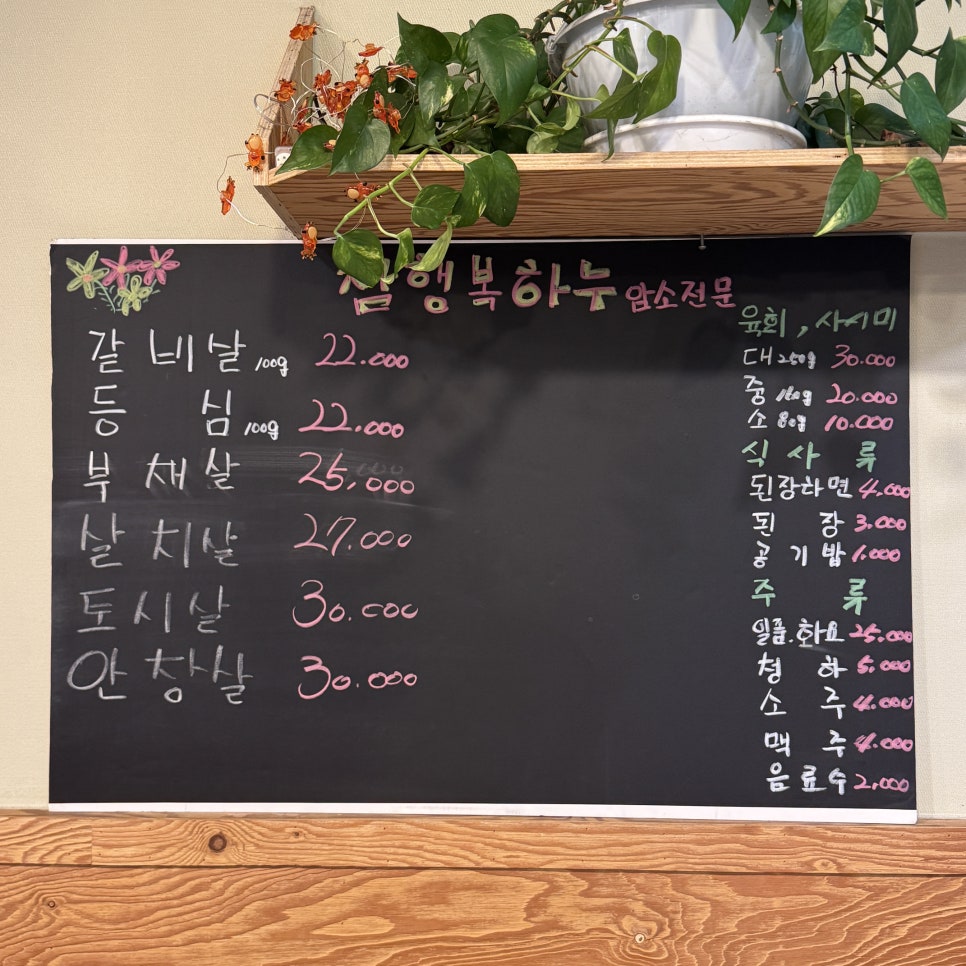 참행복하누 암소전문
갈비살 100g 22.000
등심 100g 22.000
부채살 25,000
살치살 27.000
도시살 30.000
안창살 30.000
육회, 사시미
대 250g 30.000
중 160g 20.000
소 80g 10.000
식사류
된장하면 4,000
된장 3.000
공기밥 1.000
주류
일품.화요 25.000
청하 5.000
소주 4.000
맥주 4.000
음료수 2,000